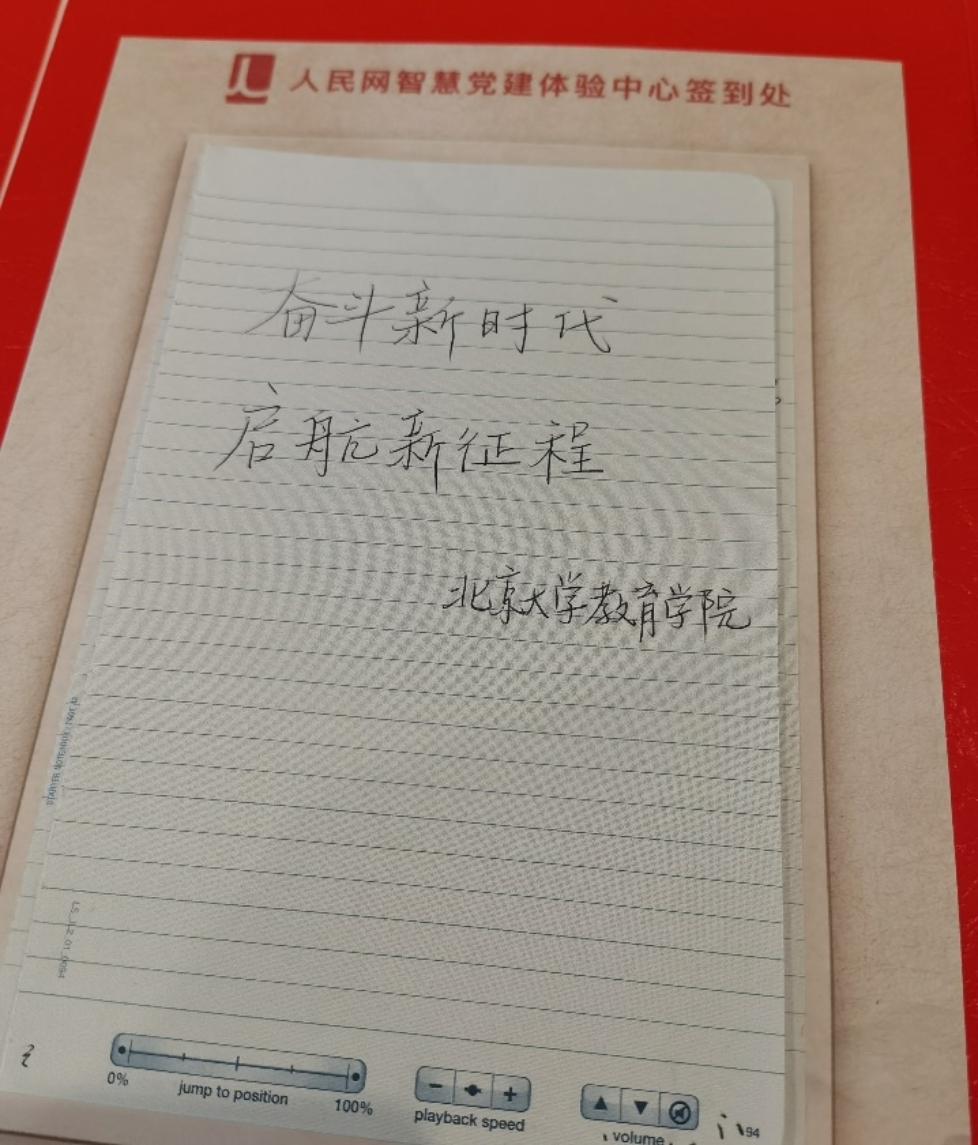 人民网智慧党建体验中心签到处
奋斗新时代
启航新征程
北京大学教育学院
0%
jump to position
100%
playback speed
volume
94